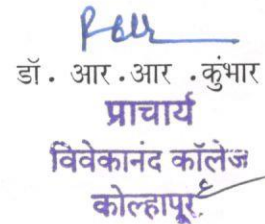 डॉ. आर.आर .कुंभार
प्राचार्य
विवेकानंद कॉलेज
कोल्हापूर